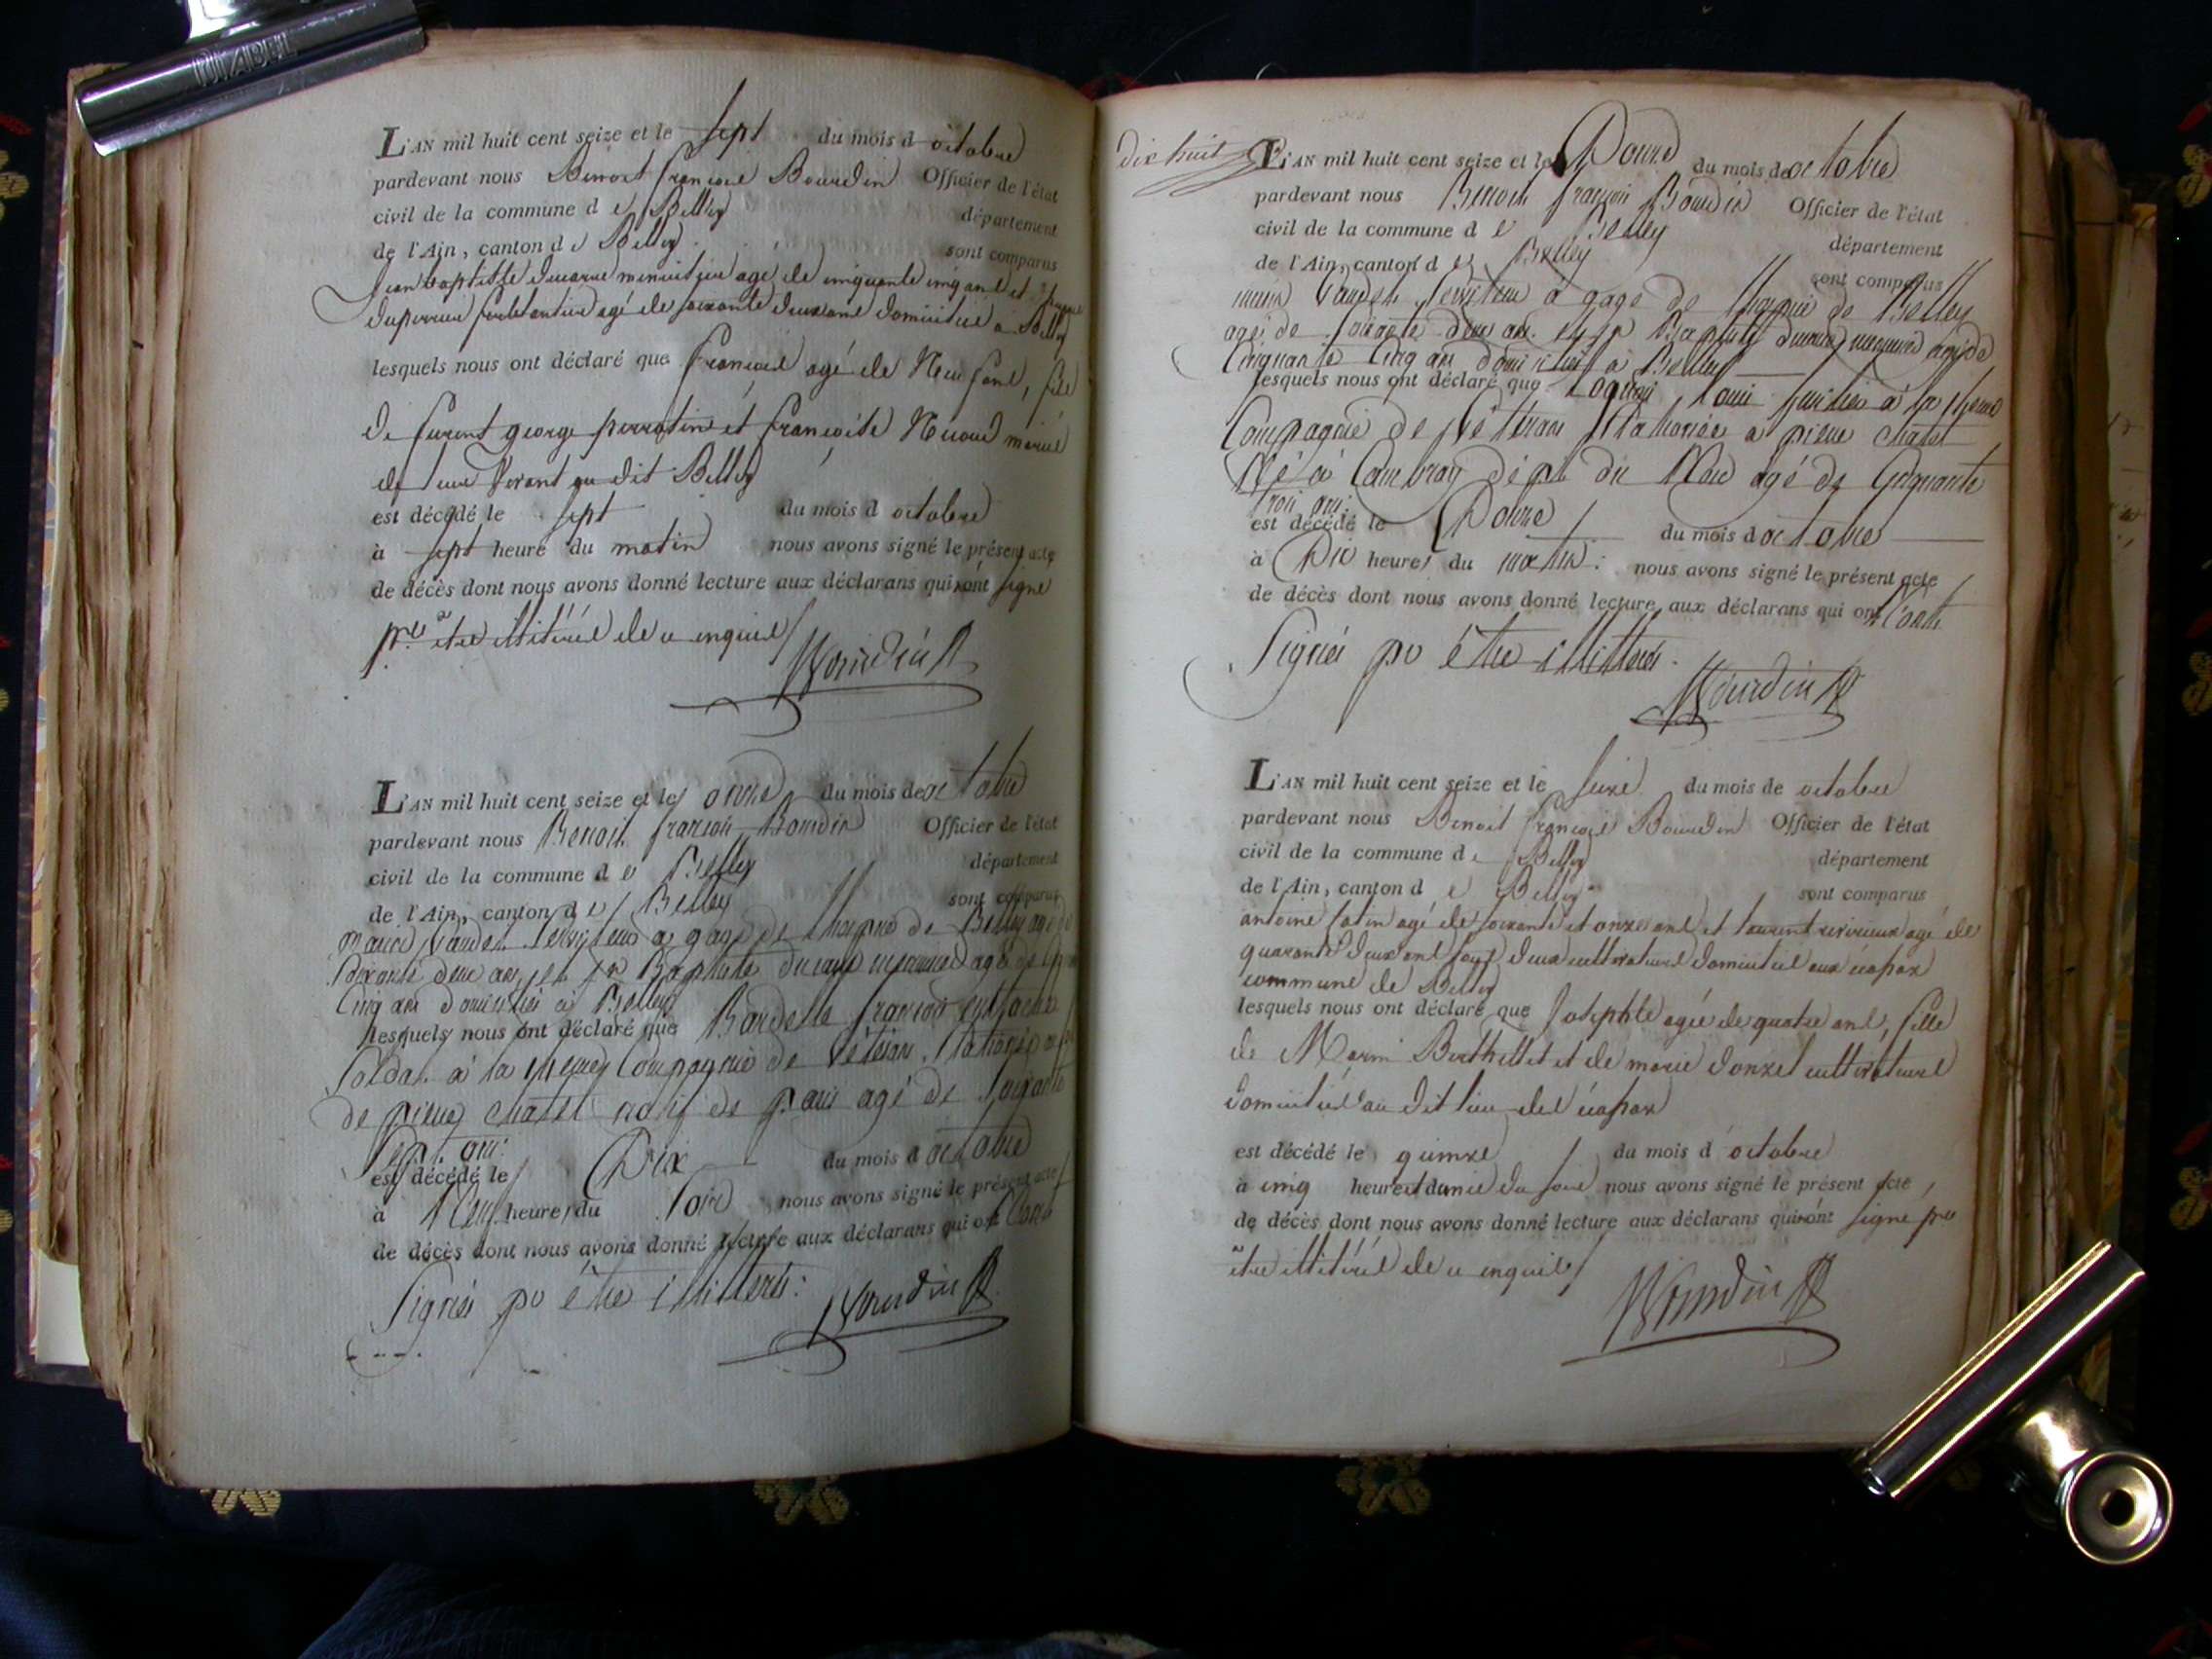 DIABEL
L'AN mil huit cent seize et le sept du mois d octobre
pardevant nous Benoit françois Bourdin Officier de l'état
civil de la commune d e Belley département
de l'Ain, canton d e Belley sont comparus
jean baptiste age de cinquante cinq ans et
agé de soixante deux ans domicilié à Belley
lesquels nous ont déclaré que françois agé de Neuf ans, fils
de furent george perrotin et françoise mariés
de leur vivant au dit Belley
est décédé le sept du mois d octobre
à sept heure du matin nous avons signé le présent acte
de décès dont nous avons donné lecture aux déclarans qui nont signé
pr être illitérés de ce enquis
Bourdin
L'AN mil huit cent seize et le onze du mois de octobre
pardevant nous Benoit françois Bourdin Officier de l'état
civil de la commune d e Belley département
de l'Ain, canton d e Belley sont comparus
serviteur a gage de de Belley agé de
soixante deux ans, et jn Baptiste agé de
cinq ans domiciliés à Belley
lesquels nous ont déclaré que françois eustache
soldat à la Compagnie de Vétérans stationée
de pierre chatel natif de paris agé de soixante
sept ans:
est décédé le Dix du mois d octobre
à Neuf heure du soir nous avons signé le présent acte
de décès dont nous avons donné lecture aux déclarans qui ont
Signés po être illitterés:
Bourdin
dix huit
L'AN mil huit cent seize et le Douze du mois de octobre
pardevant nous Benoit françois Bourdin Officier de l'état
civil de la commune d e Belley département
de l'Ain, canton d e Belley sont comparus
serviteur a gage de de Belley
agé de soixante deux ans. et jn Baptiste agé de
Cinquante Cinq ans domiciliés à Belley
lesquels nous ont déclaré que Louis à la
Compagnie de Vétérans stationée a pierre chatel
Né à Cambray dépt du Nord agé de Cinquante
trois ans.
est décédé le Douze du mois d octobre
à Dix heures du matin: nous avons signé le présent acte
de décès dont nous avons donné lecture aux déclarans qui ont
Signés po être illitterés.
Bourdin
L'AN mil huit cent seize et le seize du mois de octobre
pardevant nous Benoit françois Bourdin Officier de l'état
civil de la commune d e Belley département
de l'Ain, canton d e Belley sont comparus
antoine agé de soixante et onze ans et laurent agé de
quarante deux ans tous deux cultivateurs domiciliés aux
commune de Belley
lesquels nous ont déclaré que Josephte agée de quatre ans, fille
de Berthellet et de marie cultivateurs
domiciliés au dit lieu des
est décédé le quinze du mois d octobre
à cinq heures et demie du soir nous avons signé le présent acte
de décès dont nous avons donné lecture aux déclarans qui nont signé pr
être illitérés de ce enquis
Bourdin